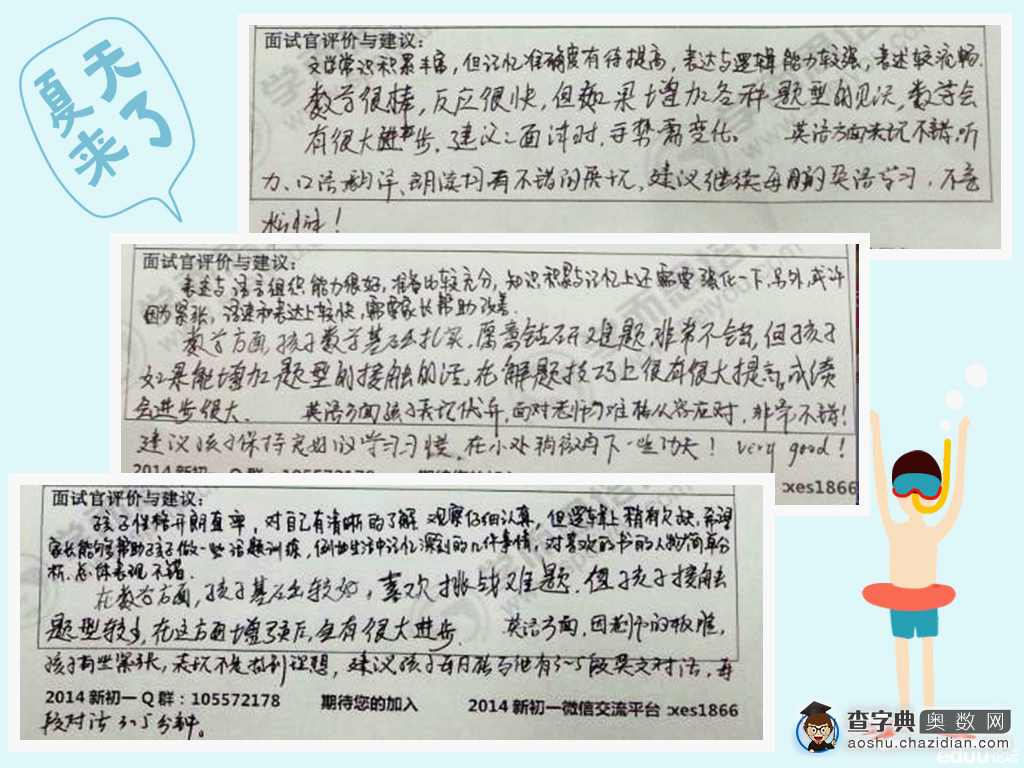 夏天
来了
面试官评价与建议：
文学常识积累丰富，但记忆准确度有待提高，表达与逻辑能力较强，表述较流畅.
数学很棒，反应很快，但如果增加各种题型的见识，数学会
有很大进步。建议：面试时，手势需变化。 英语方面表现不错，听
力、口语翻译、朗读均有不错的展现，建议继续每周的英语学习，不要
松懈！
面试官评价与建议：
表达与语言组织能力很好，准备比较充分，知识积累与记忆上还需要强化一下，另外，或许
因为紧张，语速和表达上较快，需要家长帮助改善.
数学方面，孩子数学基础扎实，愿意钻研难题，非常不错，但孩子
如果能增加题型的接触的话，在解题技巧上很有很大提高，成绩
会进步很大. 英语方面孩子表现优异，面对老师刁难 从容应对，非常不错！
建议孩子保持良好的学习习惯，在小处稍微再下一些功夫！ very good！
2014 新初一 Q 群：105572178
:xes1866
面试官评价与建议：
孩子性格开朗直率，对自己有清晰的了解，观察仔细认真，但逻辑上稍有欠缺，希望
家长能够帮助孩子做一些话题训练，例如生活中记忆深刻的几件事情，对喜欢的书的人物简单分
析，总体表现不错.
在数学方面，孩子基础较好，喜欢挑战难题，但孩子接触
题型较少，在这方面增强后，会有很大进步. 英语方面，因老师的刁难，
孩子有些紧张，表现不是特别理想，建议孩子每周能与他有3~5段英文对话，每
2014 新初一 Q 群：105572178 期待您的加入 2014 新初一微信交流平台 :xes1866
段对话 3~5 分钟。
查字典 奥数网
aoshu.chazidian.com
eduu论坛